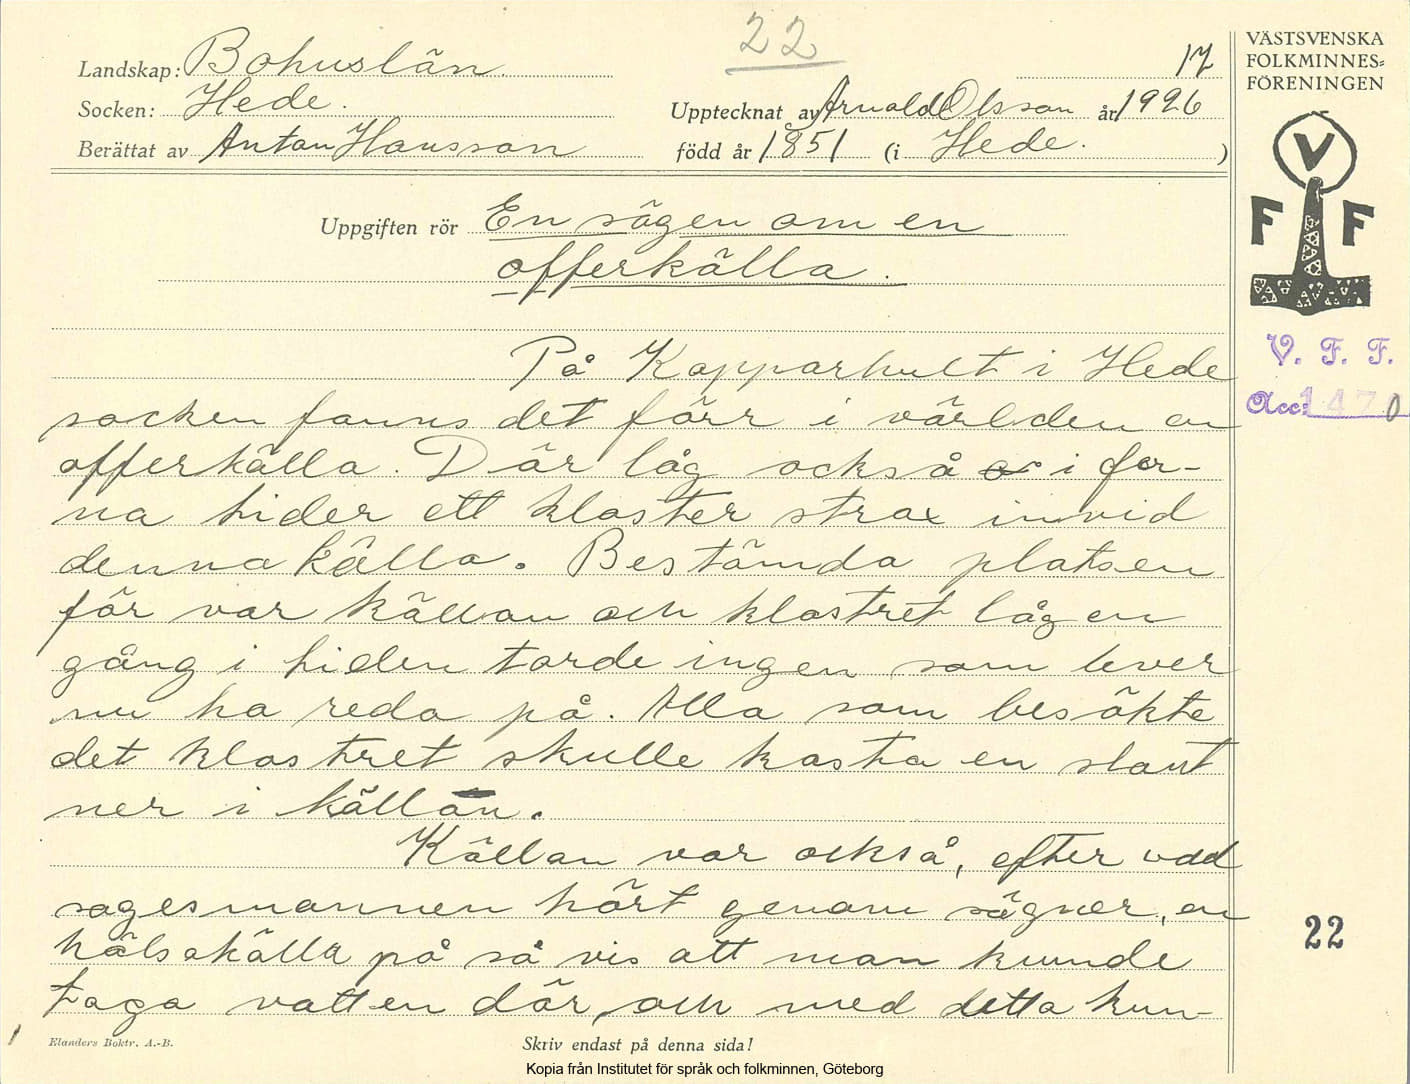 22
17
Landskap: Bohuslän.
Socken: Hede.
Upptecknat av Arnold Olsson år 1926
Berättat av Anton Hansson
född år 1851 (i Hede.)
VÄSTSVENSKA
FOLKMINNES=
FÖRENINGEN
V
F F
V. F. F.
Acc: 1470
Uppgiften rör En sägen om en
offerkälla.
På Kopparhult i Hede
socken fanns det förr i världen en
offerkälla. Där låg också i for-
na tider ett kloster strax invid
denna källa. Bestämda platsen
för var källan och klostret låg en
gång i tiden torde ingen som lever
nu ha reda på. Alla som besökte
det klostret skulle kasta en slant
ner i källan.
Källan var också, efter vad
sagesmannen hört genom sägner, en
hälsokälla på så vis att man kunde
taga vatten där, och med detta kun-
22
Elanders Boktr. A.-B.
Skriv endast på denna sida!
Kopia från Institutet för språk och folkminnen, Göteborg